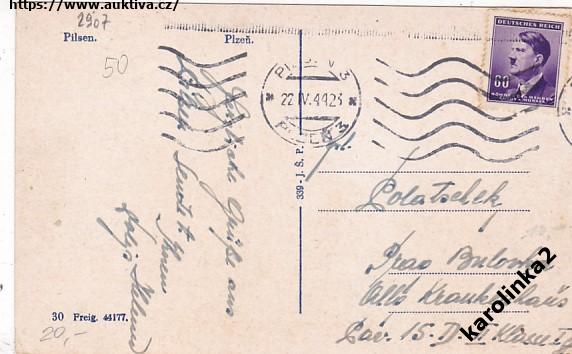 https://www.auktiva.cz/
2907
Pilsen.
Plzeň.
50
DEUTSCHES REICH
60
BÖHMEN U. MÄHREN
PILSEN 3
22.IV.44.23
PLZEŇ 3
Herzliche Grüße aus
Pilsen sendet
Ihnen
339 - J. Š. P.
Frl.
Polatschek
Prag Bulovka
Allg Krankenhaus
Pav. 15
karolinka2
30 Freig. 44177.
20,-